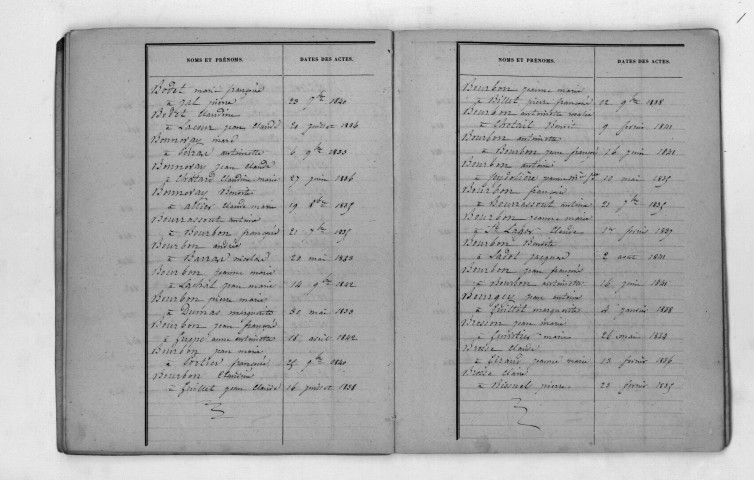 NOMS ET PRÉNOMS. DATES DES ACTES.
Bodet marie françoise
à Gal pierre 23 7bre 1840
Bodet claudine
à Lacour jean claude 20 juillet 1836
Bonnoray marie
à antoinette 6 9bre 1833
Bonnoray jean claude
à Chatard claudine marie 27 juin 1836
Bonnoray Benoit
à claude marie 19 8bre 1835
Bourrassout antoine
à Bourbon françoise 21 7bre 1835
Bourbon andré
à Barras nicolas 20 mai 1833
Bourbon jeanne marie
à Lachal jean marie 14 9bre 1842
Bourbon pierre marie
à Dumas marguerite 30 mai 1833
Bourbon jean françois
à anne antoinette 18 avril 1842
Bourbon jean marie
à françoise 25 9bre 1840
Bourbon Claudine
à Guillet jean claude 16 juillet 1838
NOMS ET PRÉNOMS. DATES DES ACTES.
Bourbon jeanne marie
à Billet pierre françois 12 9bre 1838
Bourbon antoinette marie
à Benoit 9 février 1841
Bourbon antoinette
à Bourbon jean françois 16 juin 1841
Bourbon antoine
à 10 mai 1835
Bourbon françoise
à Bourrassout antoine 21 7bre 1835
Bourbon jeanne marie
à St Lager Claude 17 février 1837
Bourbon Benoit
à Sadot 2 août 1841
Bourbon jean françois
à Bourbon antoinette 16 juin 1841
Bourgey jean antoine
à Guillot marguerite 4 janvier 1838
Brosson jean marie
à marie 26 mai 1834
Brosse claude
à Girard jeanne marie 23 février 1836
Brosse claire
à pierre 23 février 1835